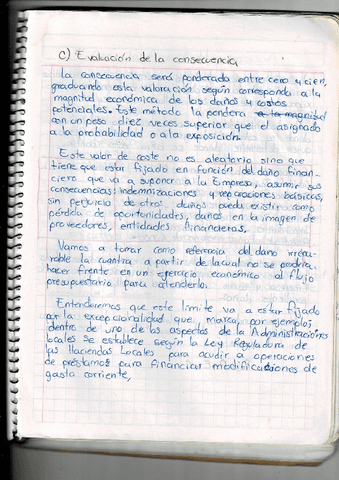 c) Evaluación de la consecuencia
La consecuencia será ponderada entre cero y cien,
graduando esta valoración según corresponda a la
magnitud económica de los daños y costos
potenciales. Este método la pondera a la magnitud
con un peso diez veces superior que el asignado
a la probabilidad o a la exposición.
Este valor de coste no es aleatorio sino que
tiene que estar fijado en función del daño finan-
ciero que va a suponer a la Empresa, asumir sus
consecuencias: indemnizaciones y reparaciones básicas,
sin perjuicio de otros daños pueda existir como
pérdida de oportunidades, daños en la imagen de
proveedores, entidades financieras.
Vamos a tomar como referencia del daño irrepa-
rable la cuantía a partir de la cual no se podría
hacer frente en un ejercicio económico al flujo
presupuestario para atenderlo.
Entenderemos que este límite va a estar fijado
por la excepcionalidad que marca, por ejemplo,
dentro de uno de los aspectos de la Administraciones
locales se establece según la Ley Reguladora de
las Haciendas Locales para acudir a operaciones
de préstamos para financiar modificaciones de
gasto corriente,